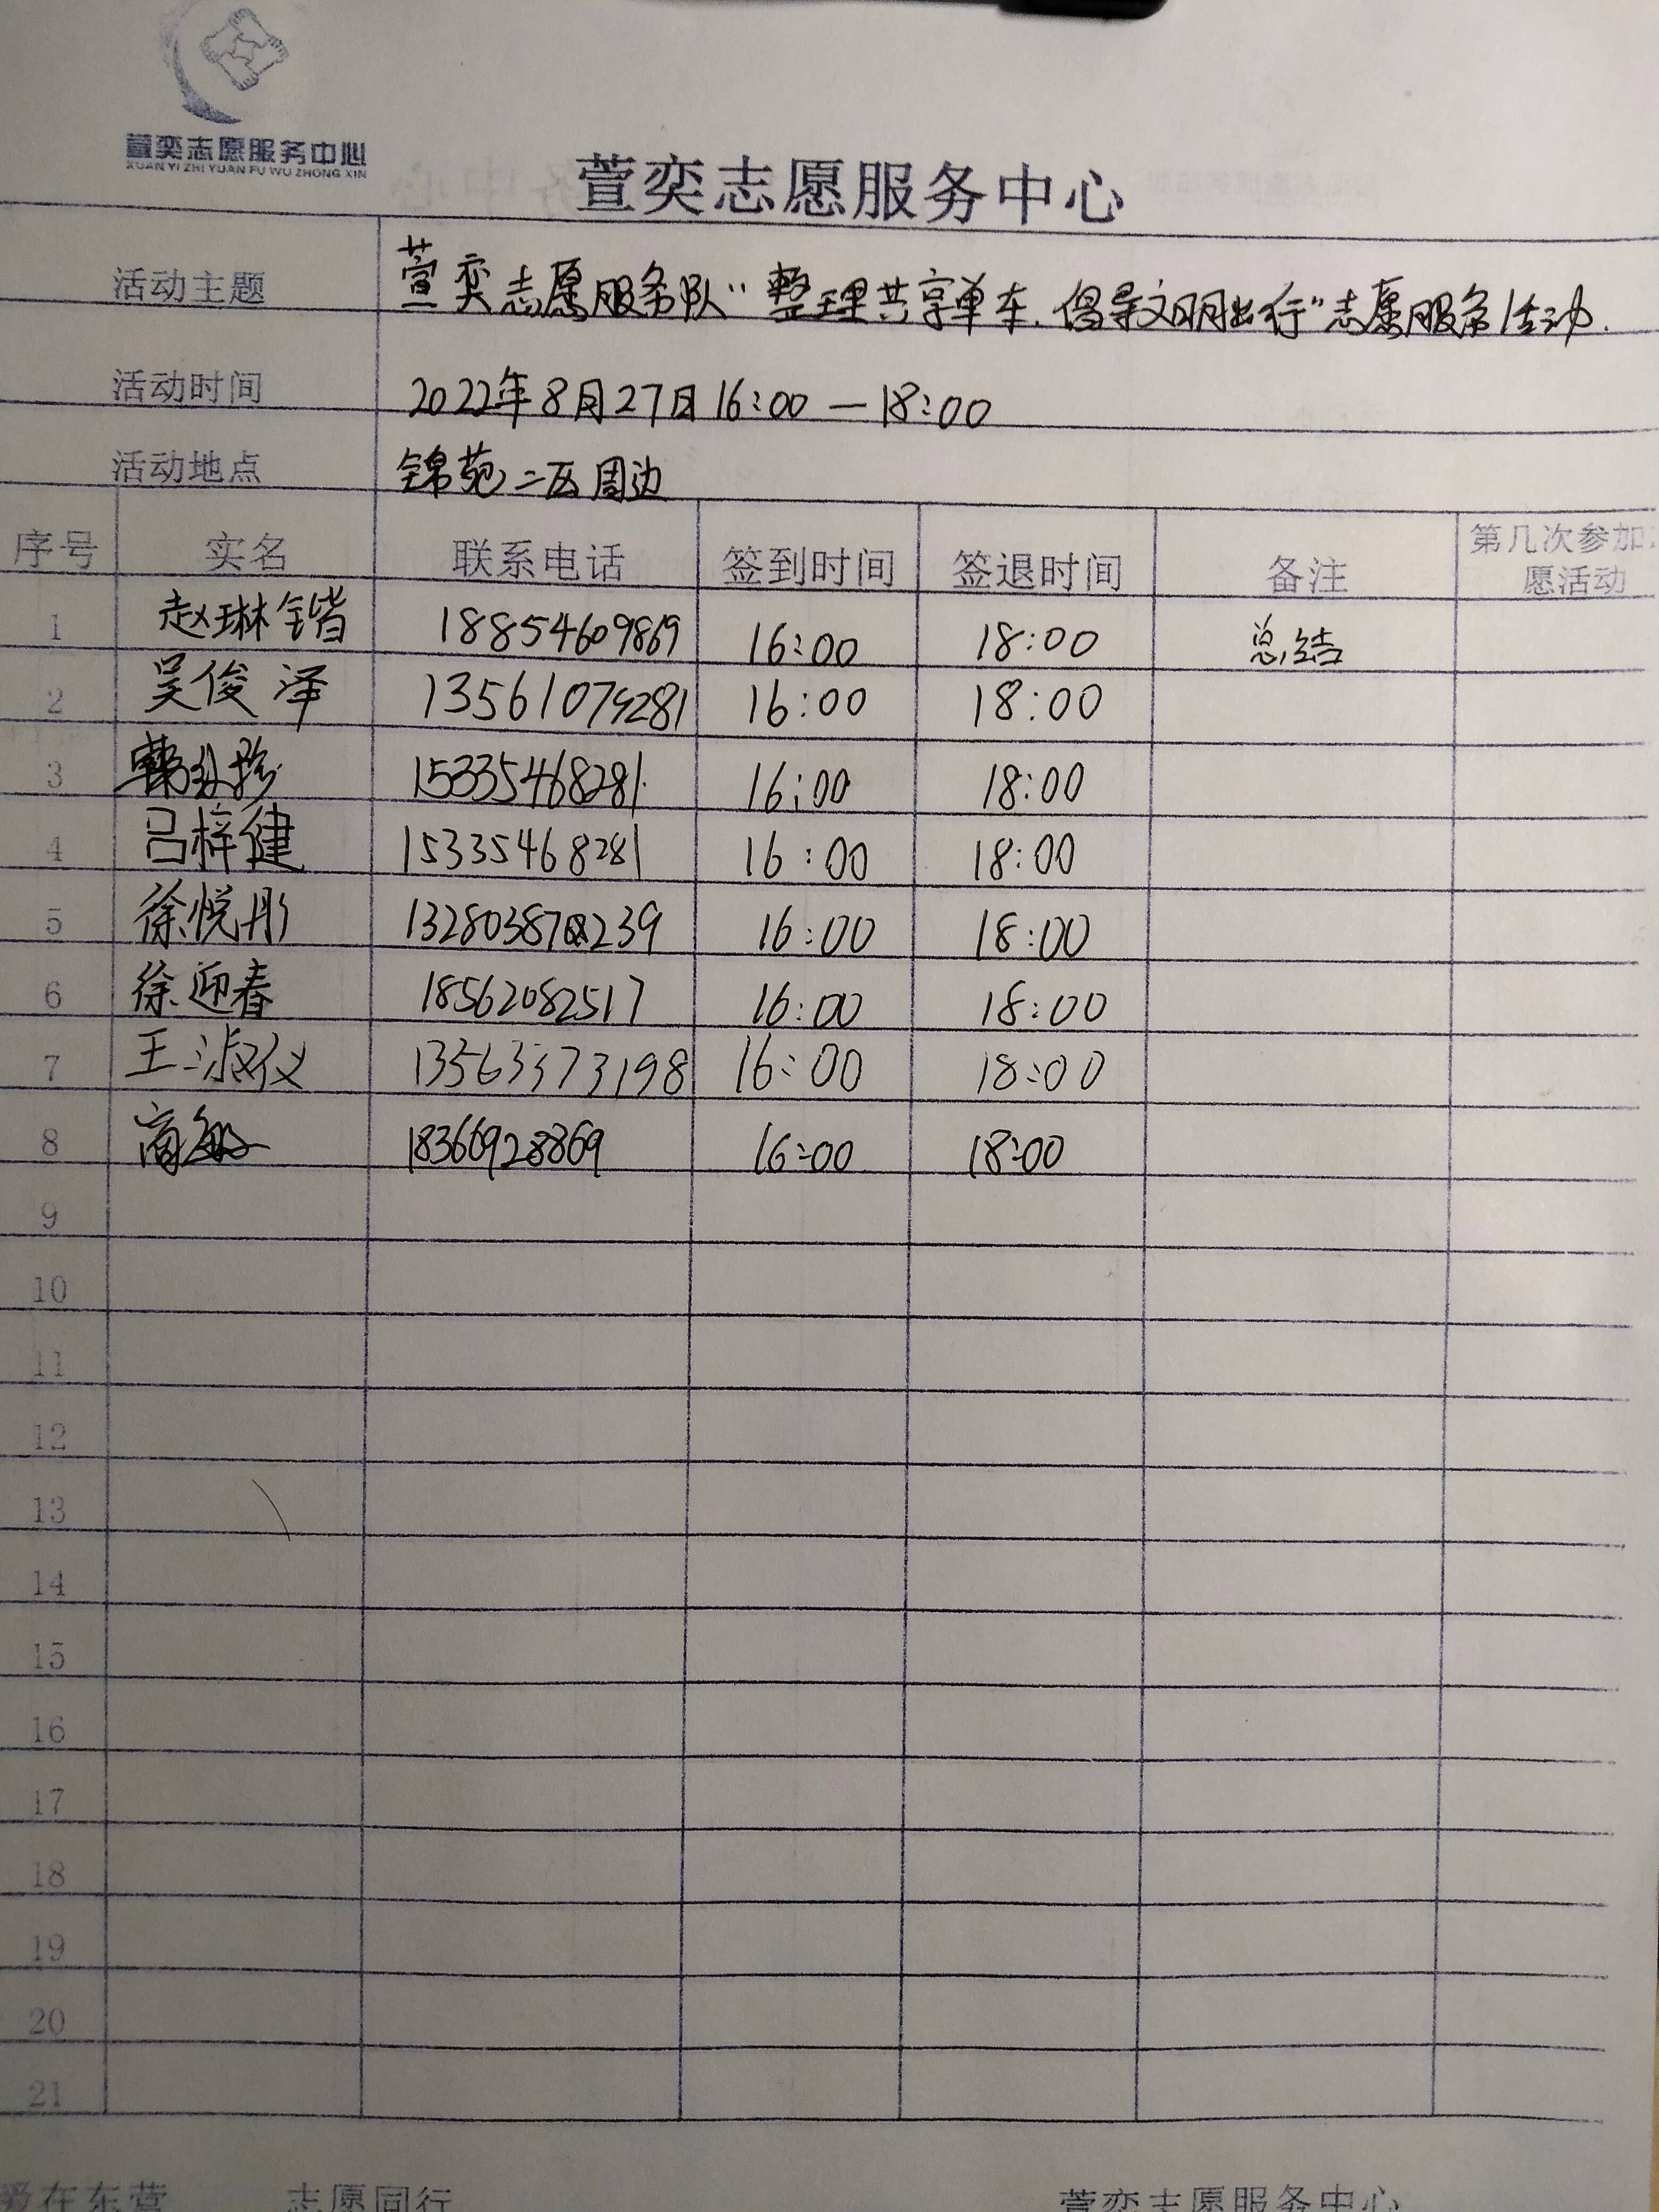 萱奕志愿服务中心
XUAN YI ZHI YUAN FU WU ZHONG XIN
萱奕志愿服务中心
活动主题 萱奕志愿服务队"整理共享单车.倡导文明出行"志愿服务活动.
活动时间 2022年8月27日16:00—18:00
活动地点 锦苑二区周边
序号 实名 联系电话 签到时间 签退时间 备注 第几次参加
愿活动
1 赵琳锴 18854609869 16:00 18:00 总结
2 吴俊泽 13561079281 16:00 18:00
3 15335468281 16:00 18:00
4 吕梓健 15335468281 16:00 18:00
5 徐悦彤 16:00 18:00
6 徐迎春 18562082517 16:00 18:00
7 王淑仪 13563373198 16:00 18:00
8 商敏 18366928869 16:00 18:00
9
10
11
12
13
14
15
16
17
18
19
20
21
爱在东营 志愿同行 萱奕志愿服务中心